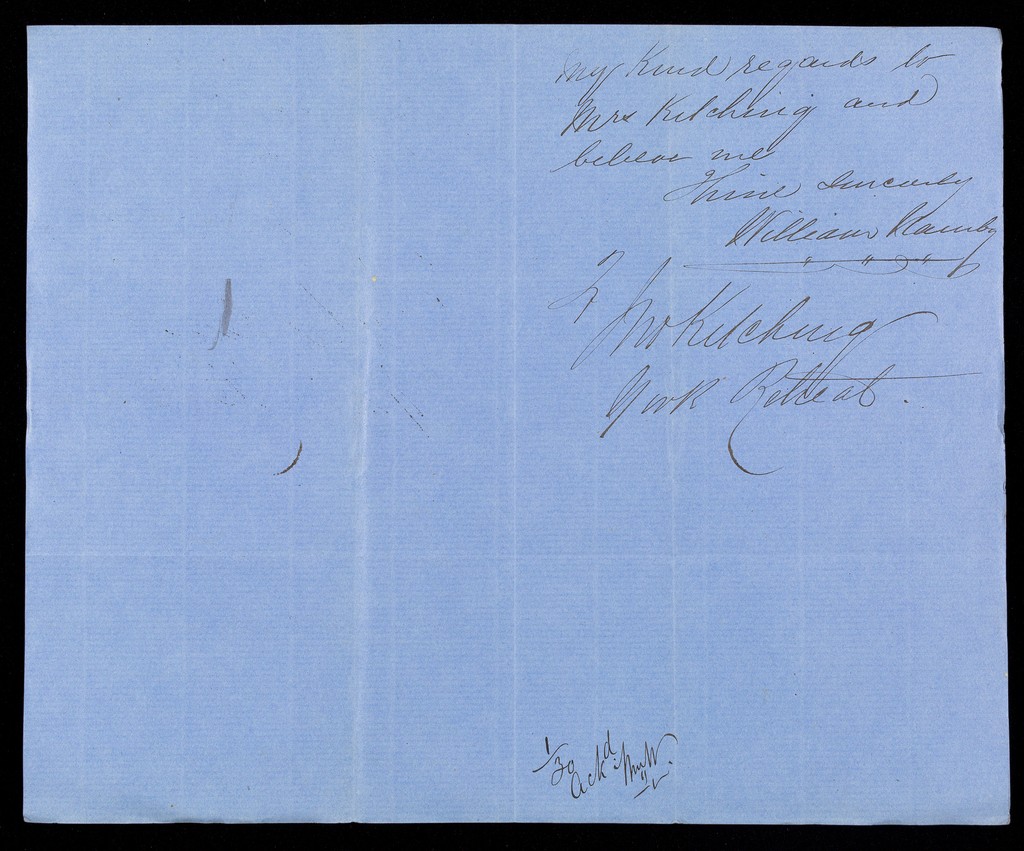 my Kind regards to
Mrs Kitching and
believe me
Thine sincerely
William
To
Jno Kitching
York Retreat.
1/30
Ackd